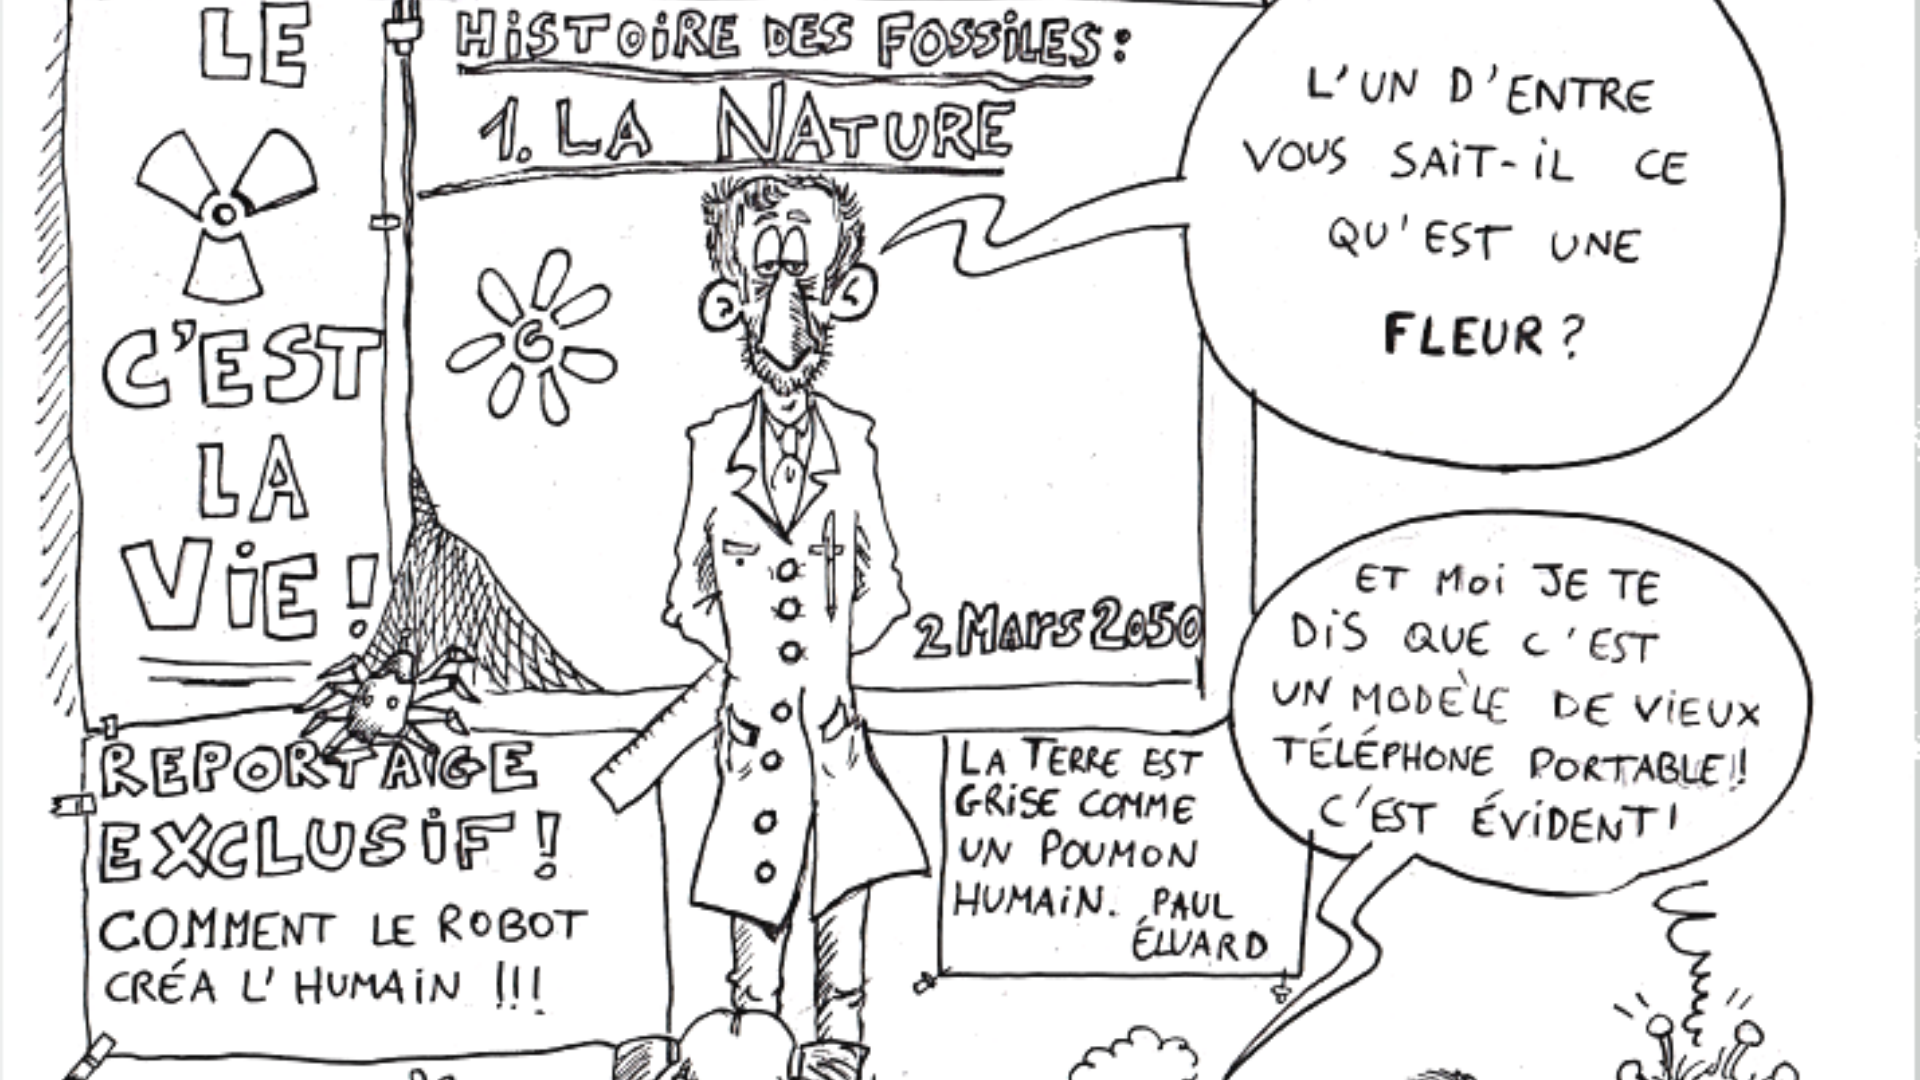 LE
C'EST
LA
ViE!
HiSTOiRE DES FOSSiLES:
1. LA NATURE
L'UN D'ENTRE
VOUS SAiT-iL CE
QU'EST UNE
FLEUR?
2 Mars 2050
ET Moi JE TE
DiS QUE C'EST
UN MODÈLE DE ViEUX
TÉLÉPHONE PORTABLE!!
C'EST ÉViDENT!
REPORTAGE
EXCLUSiF!
COMMENT LE ROBOT
CRÉA L'HUMAiN !!!
LA TERRE EST
GRiSE COMME
UN POUMON
HUMAiN. PAUL
ÉLUARD